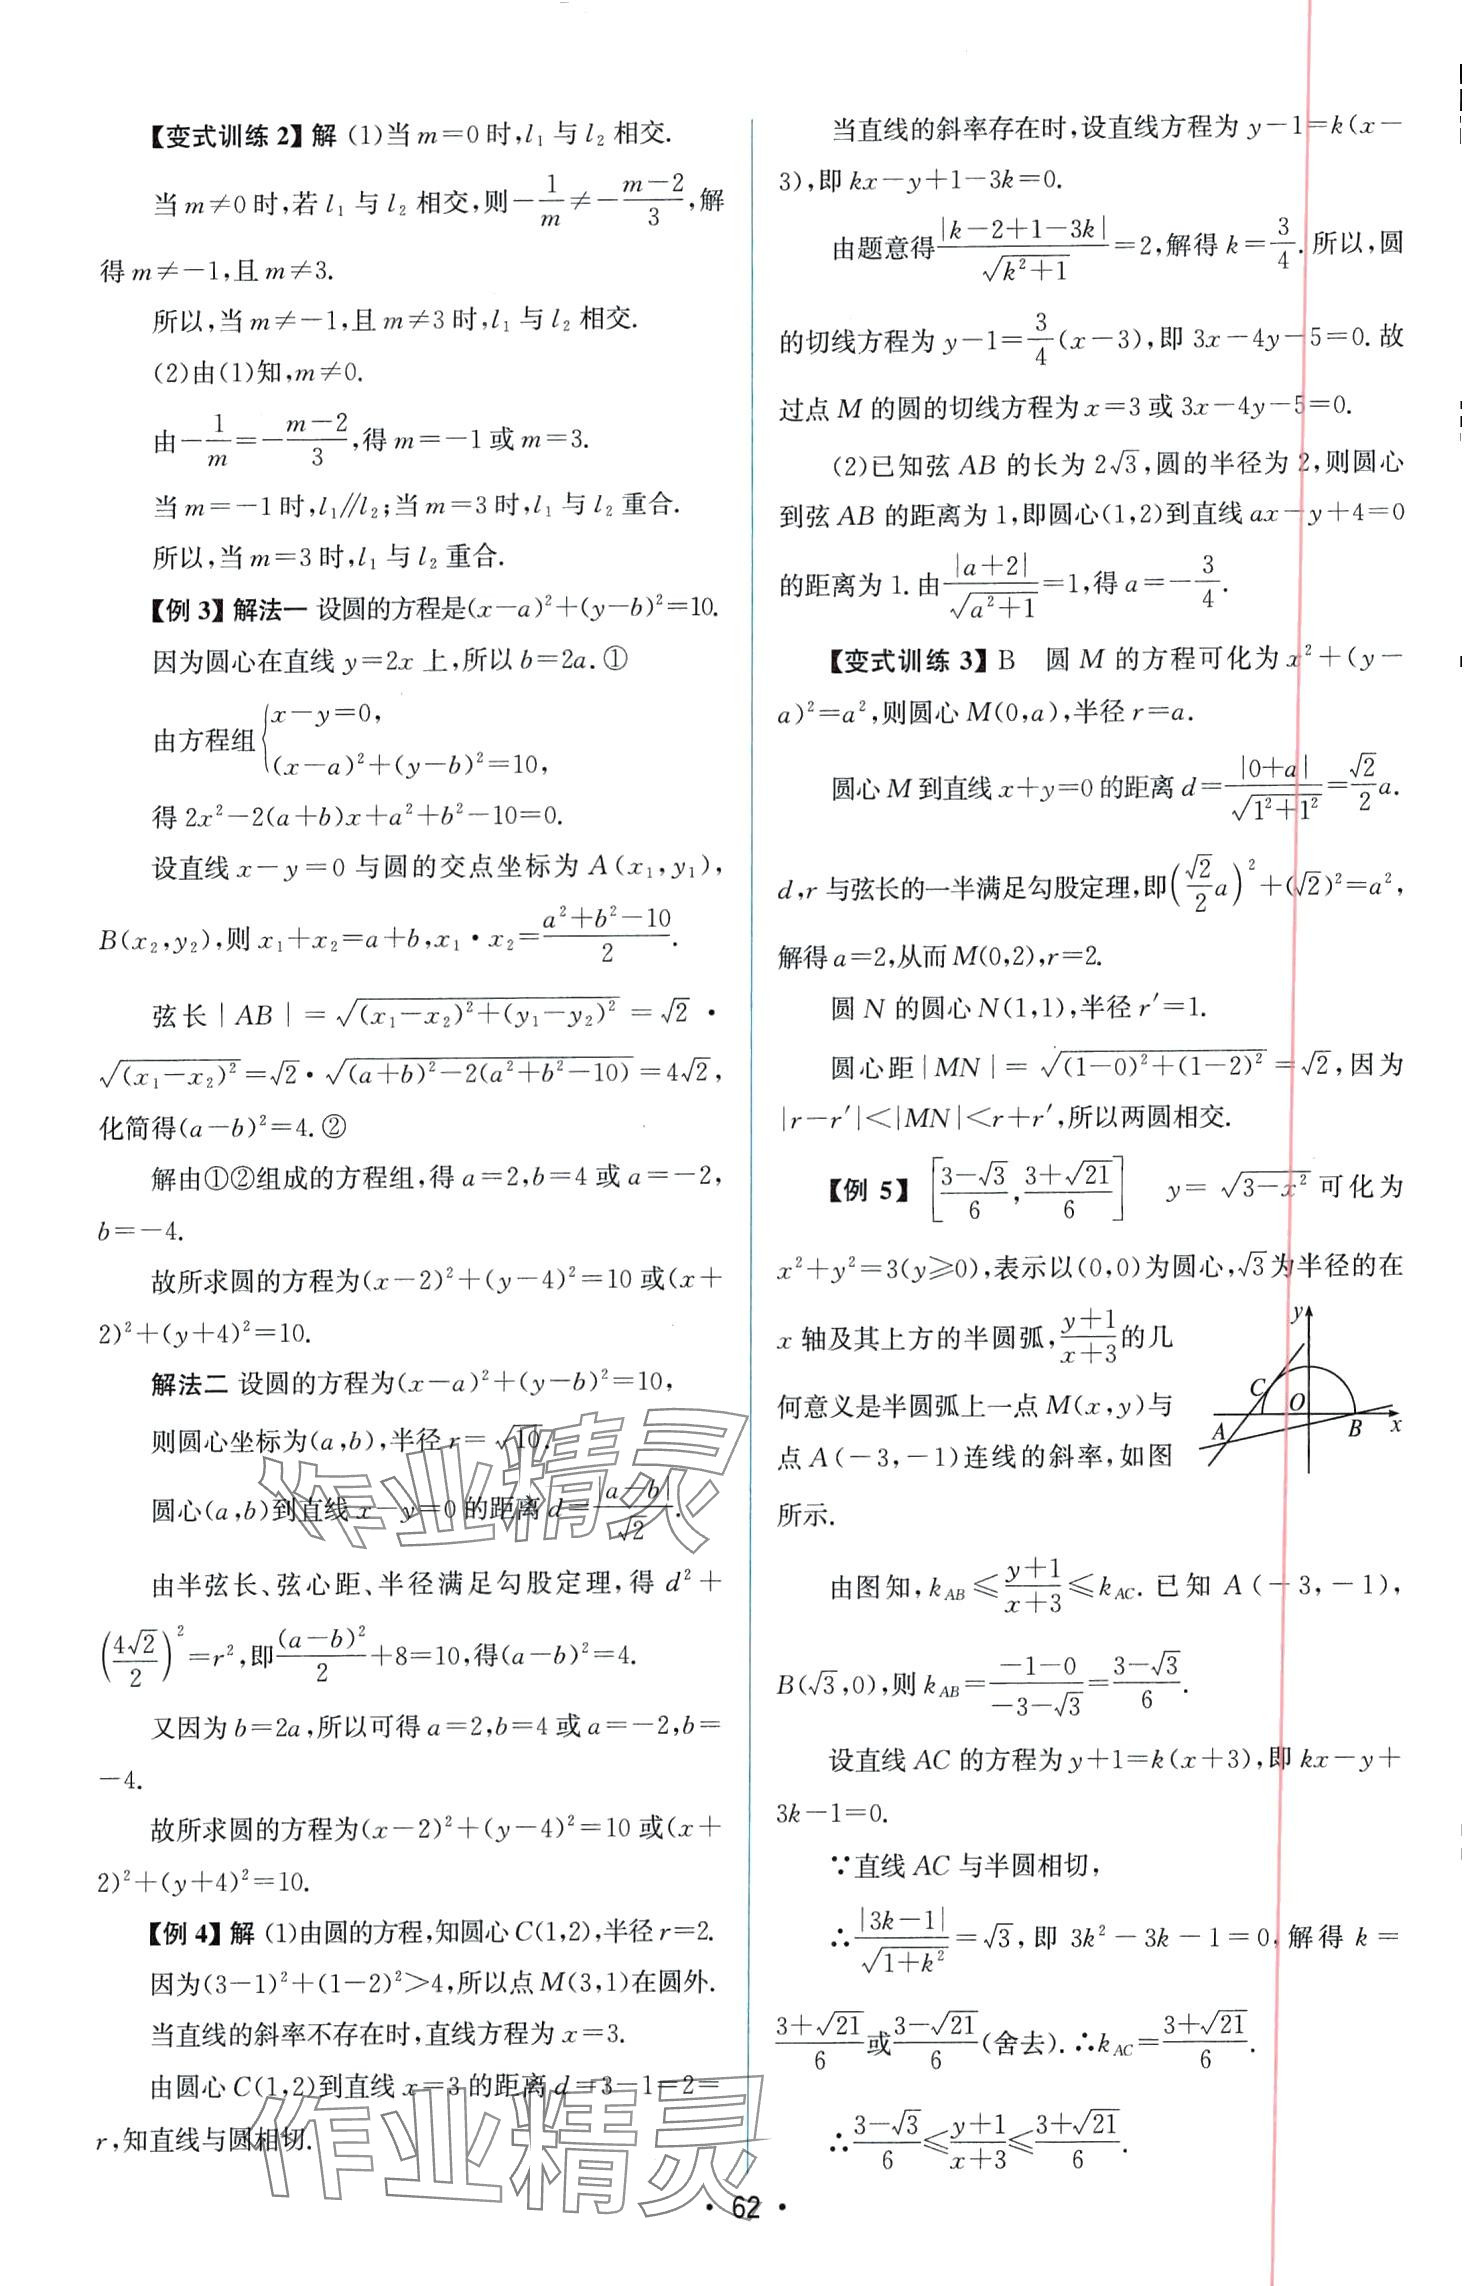 【变式训练2】解 (1)当 m=0 时,l₁ 与 l₂ 相交.
当 m≠0 时,若 l₁ 与 l₂ 相交,则 -1/m ≠ -(m-2)/3,解
得 m≠-1,且 m≠3.
所以,当 m≠-1,且 m≠3 时,l₁ 与 l₂ 相交.
(2)由(1)知,m≠0.
由 -1/m = -(m-2)/3,得 m=-1 或 m=3.
当 m=-1 时,l₁∥l₂;当 m=3 时,l₁ 与 l₂ 重合.
所以,当 m=3 时,l₁ 与 l₂ 重合.
【例 3】解法一 设圆的方程是(x-a)²+(y-b)²=10.
因为圆心在直线 y=2x 上,所以 b=2a. ①
由方程组{x-y=0,
(x-a)²+(y-b)²=10,
得 2x²-2(a+b)x+a²+b²-10=0.
设直线 x-y=0 与圆的交点坐标为 A(x₁,y₁),
B(x₂,y₂),则 x₁+x₂=a+b,x₁·x₂=(a²+b²-10)/2.
弦长|AB|=√((x₁-x₂)²+(y₁-y₂)²)=√2·
√((x₁-x₂)²)=√2·√((a+b)²-2(a²+b²-10))=4√2,
化简得(a-b)²=4. ②
解由①②组成的方程组,得 a=2,b=4 或 a=-2,
b=-4.
故所求圆的方程为(x-2)²+(y-4)²=10 或(x+
2)²+(y+4)²=10.
解法二 设圆的方程为(x-a)²+(y-b)²=10,
则圆心坐标为(a,b),半径 r=√10.
圆心(a,b)到直线 x-y=0 的距离 d=|a-b|/√2.
由半弦长、弦心距、半径满足勾股定理,得 d²+
(4√2/2)²=r²,即(a-b)²/2+8=10,得(a-b)²=4.
又因为 b=2a,所以可得 a=2,b=4 或 a=-2,b=
-4.
故所求圆的方程为(x-2)²+(y-4)²=10 或(x+
2)²+(y+4)²=10.
【例 4】解 (1)由圆的方程,知圆心 C(1,2),半径 r=2.
因为(3-1)²+(1-2)²>4,所以点 M(3,1)在圆外.
当直线的斜率不存在时,直线方程为 x=3.
由圆心 C(1,2)到直线 x=3 的距离 d=3-1=2=
r,知直线与圆相切.
当直线的斜率存在时,设直线方程为 y-1=k(x-
3),即 kx-y+1-3k=0.
由题意得|k-2+1-3k|/√(k²+1)=2,解得 k=3/4.所以,圆
的切线方程为 y-1=3/4(x-3),即 3x-4y-5=0. 故
过点 M 的圆的切线方程为 x=3 或 3x-4y-5=0.
(2)已知弦 AB 的长为 2√3,圆的半径为 2,则圆心
到弦 AB 的距离为 1,即圆心(1,2)到直线 ax-y+4=0
的距离为 1. 由|a+2|/√(a²+1)=1,得 a=-3/4.
【变式训练 3】B 圆 M 的方程可化为 x²+(y-
a)²=a²,则圆心 M(0,a),半径 r=a.
圆心 M 到直线 x+y=0 的距离 d=|0+a|/√(1²+1²)=(√2/2)a.
d,r 与弦长的一半满足勾股定理,即((√2/2)a)²+(√2)²=a²,
解得 a=2,从而 M(0,2),r=2.
圆 N 的圆心 N(1,1),半径 r′=1.
圆心距|MN|=√((1-0)²+(1-2)²)=√2,因为
|r-r′|<|MN|<r+r′,所以两圆相交.
【例 5】[(3-√3)/6,(3+√21)/6] y=√(3-x²)可化为
x²+y²=3(y≥0),表示以(0,0)为圆心,√3为半径的在
x 轴及其上方的半圆弧,(y+1)/(x+3)的几
何意义是半圆弧上一点 M(x,y)与
点 A(-3,-1)连线的斜率,如图
所示.
y
C
O
A
B
x
由图知,k_AB≤(y+1)/(x+3)≤k_AC. 已知 A(-3,-1),
B(√3,0),则 k_AB=(-1-0)/(-3-√3)=(3-√3)/6.
设直线 AC 的方程为 y+1=k(x+3),即 kx-y+
3k-1=0.
∵直线 AC 与半圆相切,
∴|3k-1|/√(1+k²)=√3,即 3k²-3k-1=0,解得 k=
(3+√21)/6或(3-√21)/6(舍去).∴k_AC=(3+√21)/6.
∴(3-√3)/6≤(y+1)/(x+3)≤(3+√21)/6.
作业精灵
作业精灵
· 62 ·